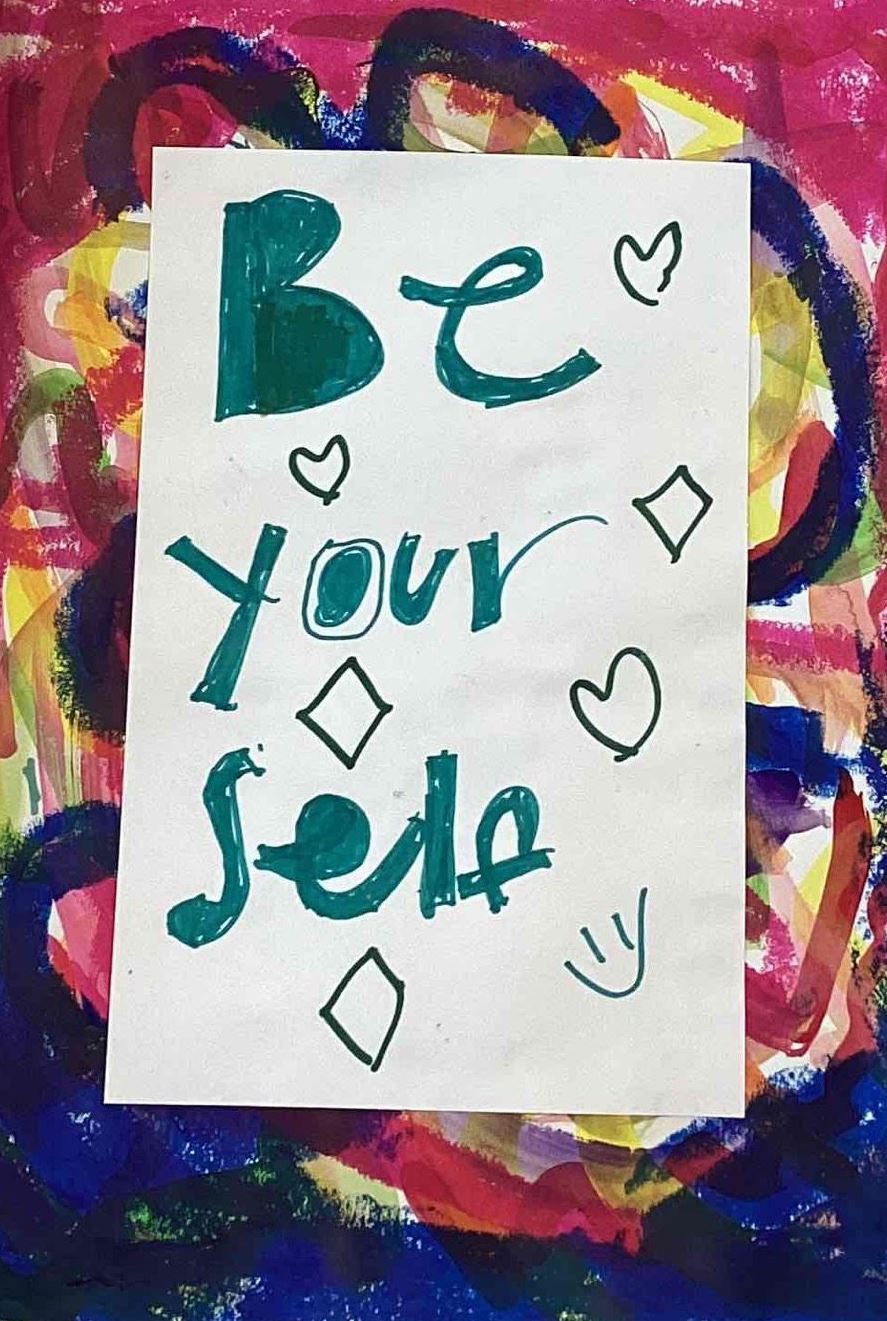 Be
your
self